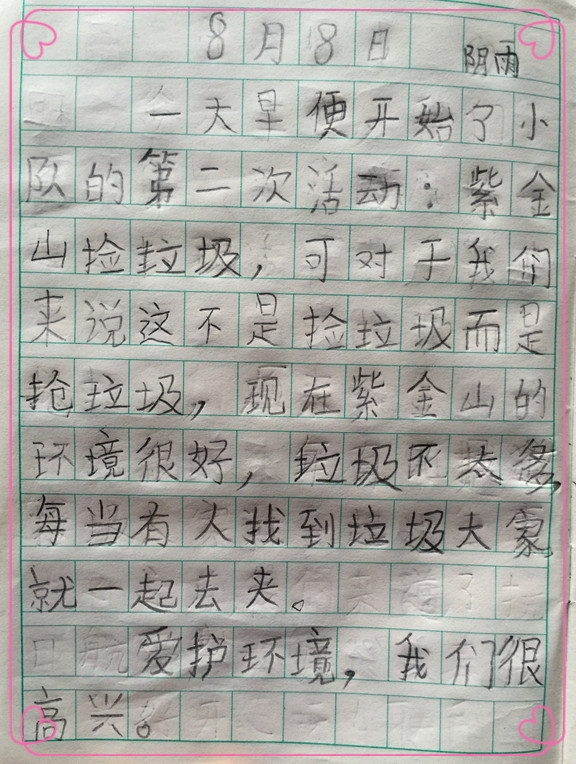 8月8日 阴雨
一大早便开始了小
队的第二次活动：紫金
山捡垃圾，可对于我们
来说这不是捡垃圾而是
抢垃圾，现在紫金山的
环境很好，垃圾不太多，
每当有人找到垃圾大家
就一起去夹。
爱护环境，我们很
高兴。